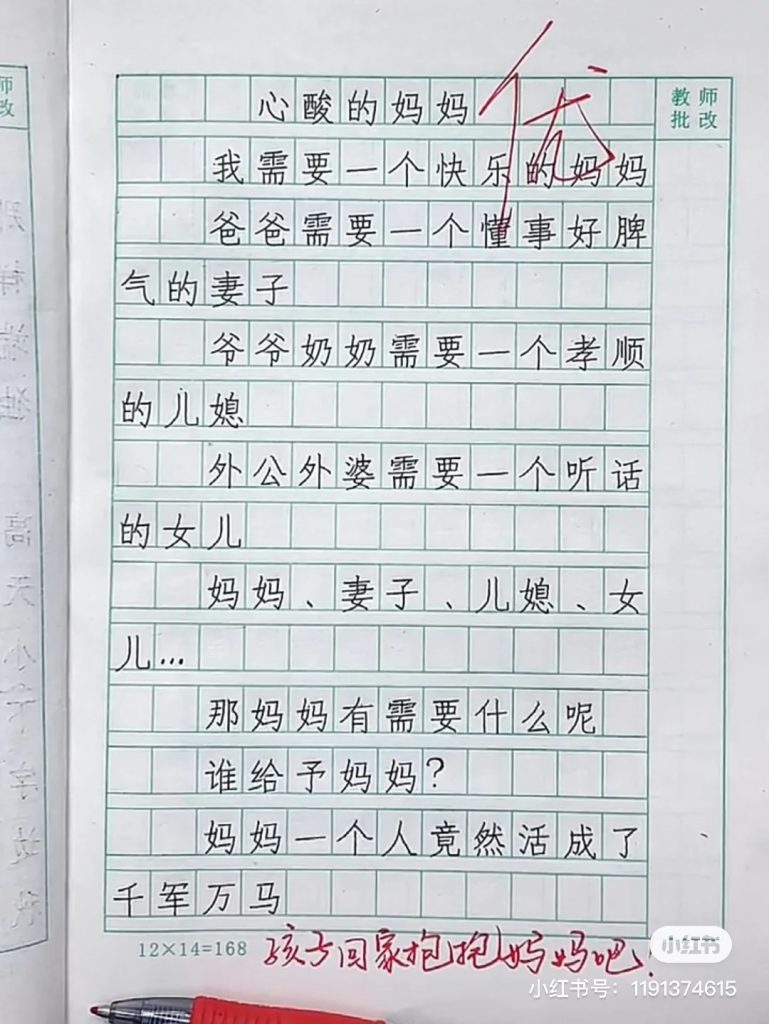 优
教师
批改
心酸的妈妈
我需要一个快乐的妈妈
爸爸需要一个懂事好脾
气的妻子
爷爷奶奶需要一个孝顺
的儿媳
外公外婆需要一个听话
的女儿
妈妈、妻子、儿媳、女
儿...
那妈妈有需要什么呢
谁给予妈妈?
妈妈一个人竟然活成了
千军万马
12×14=168
孩子回家抱抱妈妈吧!
小红书
小红书号：1191374615